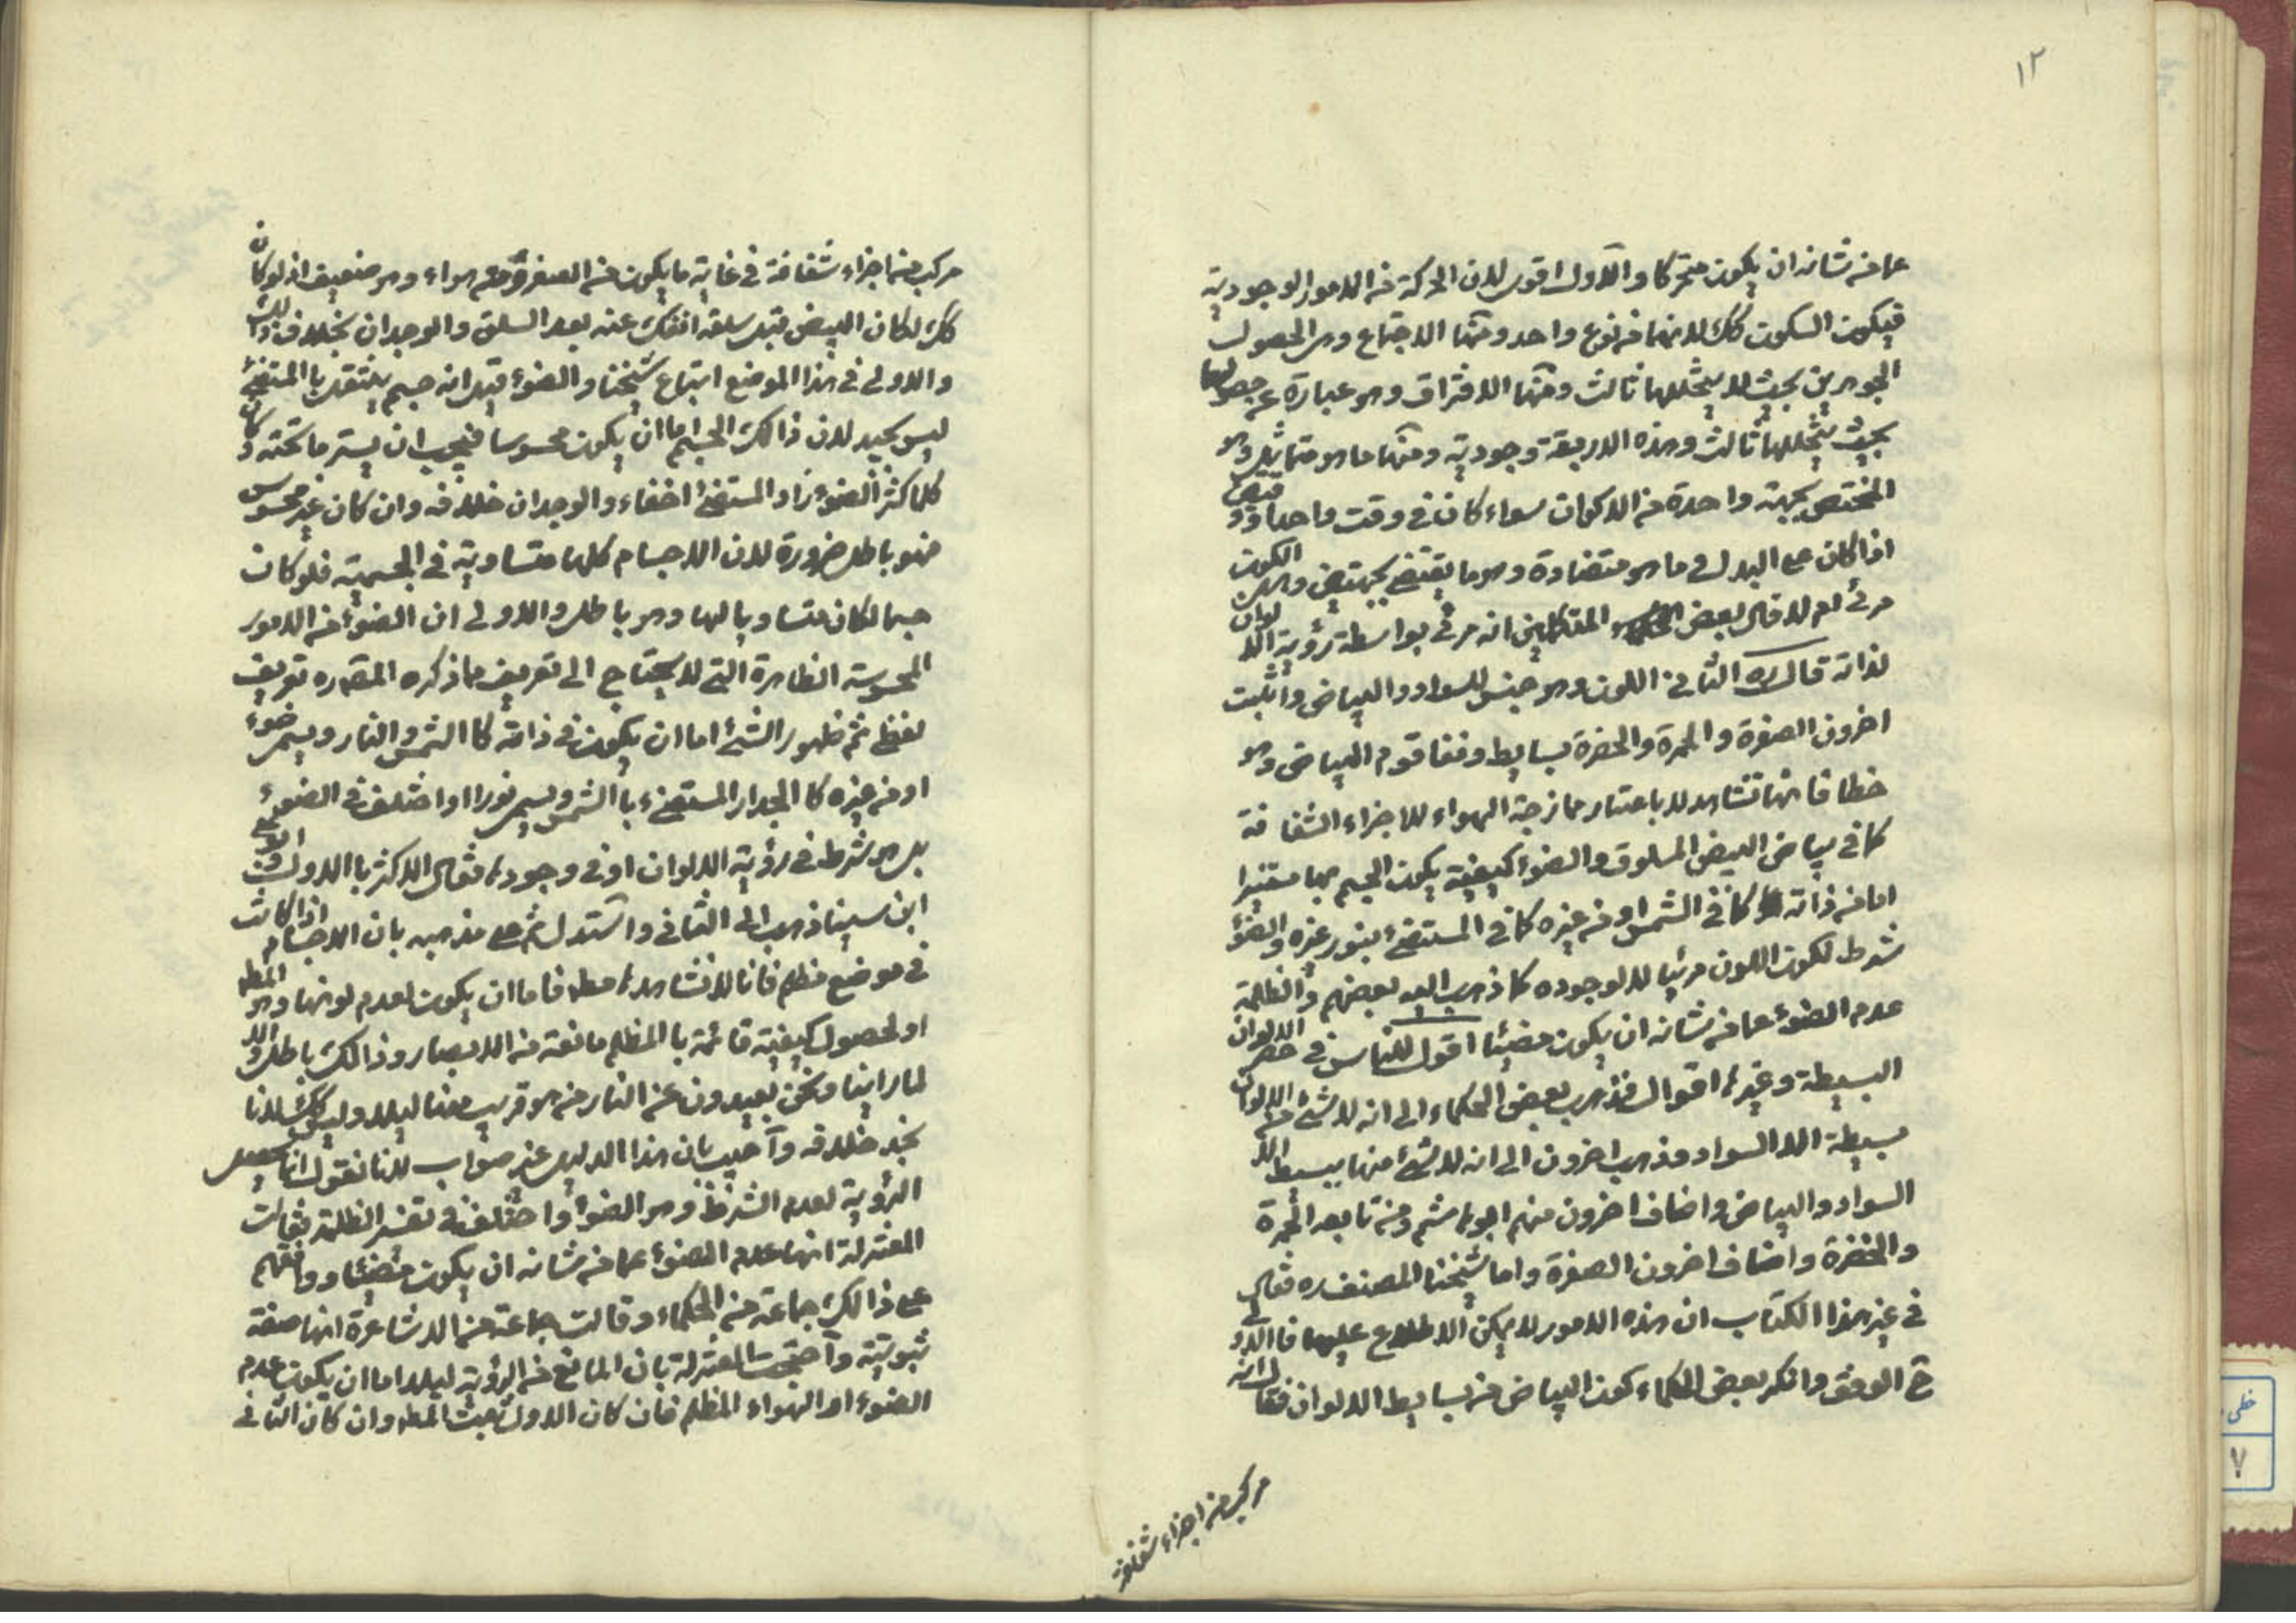 ١٢
عما من شانه ان يكون متحركا والاول اقوى لان الحركة من الامور الوجودية
فيكون السكون كك لانهما من نوع واحد ومنها الاجتماع وهى الحصول
الجوهرين بحيث لا يتخللهما ثالث ومنها الافتراق وهو عبارة عن حصولهما
بحيث يتخللهما ثالث وهذه الاربعة وجودية ومنها ما هو متماثل وهو
المختص بجهة واحدة من الاكوان سواء كان فى وقت واحد او وقتين
اذا كان على البدل و ما هو متضادة وهو ما يقتضى بجهتين وهل الكون
مرئى ام لا قال بعض المتكلمين انه مرئى بواسطة رؤية الالوان
لذاته قال ره الثانى اللون وهو جنس للسواد والبياض واثبت
اخرون الصفرة والحمرة والخضرة بسايط ونفا قوم البياض وهو
خطا فانها تشاهد لا باعتبار ممازجة الهواء للاجزاء الشفافة
كما فى بياض البيض المسلوق والضوء كيفية يكون الجسم بها مستنيرا
اما من ذاته كما فى الشمس او من غيره كما فى المستضئ بنور غيره والضوء
شرط لكون اللون مرئيا لا لوجوده كما ذهب اليه بعضهم والظلمة
عدم الضوء عما من شانه ان يكون مضيئا اقول للناس فى حصر الالوان
البسيطة وغيرها اقوال فذهب بعض الحكماء الى انه لا شئ من الالوان
بسيطة الا السواد وذهب اخرون الى انه لا شئ منها ببسيط الا
السواد والبياض واضاف اخرون منهم ابو هاشم ومن تابعه الحمرة
والخضرة واضاف اخرون الصفرة واما شيخنا المصنف ره فقال
فى غير هذا الكتاب ان هذه الامور لا يمكن الاطلاع عليها فالاولى
ح الوقف وانكر بعض الحكماء كون البياض من بسايط الالوان فقال انه
مركب من اجزاء شفافة
مركب منها اجزاء شفافة فى غاية ما يكون من الصغر ومن هواء وهو ضعيف اذ لو كان
كك لكان البيض قبل سلقه انفك عنه بعد السلق والوجدان بخلاف ذلك
والاولى فى هذا الموضع اتباع شيخنا والضوء قيل انه جسم ينتقل با المستضئ
ليس بجيد لان ذالك الجسم اما ان يكون محسوسا فيجب ان يستر ما تحته وكان
كلما كثر الضوء زاد المستضئ اخفاء والوجدان خلافه وان كان غير محسوس
فهو باطل ضرورة لان الاجسام كلها متساوية فى الجسمية فلو كان
جسما لكان متساويا لها وهو باطل والاولى ان الضوء من الامور
المحسوسة الظاهرة التى لا يحتاج الى تعريف فما ذكره المصره تعريف
لفظى ثم ظهور الشئ اما ان يكون فى ذاته كا الشمس والنار ويسمى ضوء
او من غيره كا الجدار المستضئ با الشمس ويسمى نورا او اختلف فى الضوء
بل هو شرط فى رؤية الالوان او فى وجودها فقال الاكثر با الاول وابو على
ابن سينا ذهب الى الثانى واستدل ثم على مذهبه بان الاجسام اذا كانت
فى موضع مظلم فانا لا نشاهدها مط فاما ان يكون لعدم لونها وهو المط
او لحصول كيفية قائمة با المظلم مانعة من الابصار وذالك باطل والا
لما راينا ونحن بعيدون عن النار من هو قريب منها ليلا وليس كك لانا
نجد خلافه واجيب بان هذا الدليل غير صواب لانا نقول انما يحصل
الرؤية لعدم الشرط وهو الضوء واختلف فى تفسير الظلمة فقالت
المعتزلة انها عدم الضوء عما من شانه ان يكون مضيئا ووافقهم
على ذالك جماعة من الحكماء وقالت جماعة من الاشاعرة انها صفة
ثبوتية واحتجت المعتزلة بان المانع من الرؤية ليلا اما ان يكون عدم
الضوء او الهواء المظلم فان كان الاول ثبت المط وان كان الثانى
خطى
٧